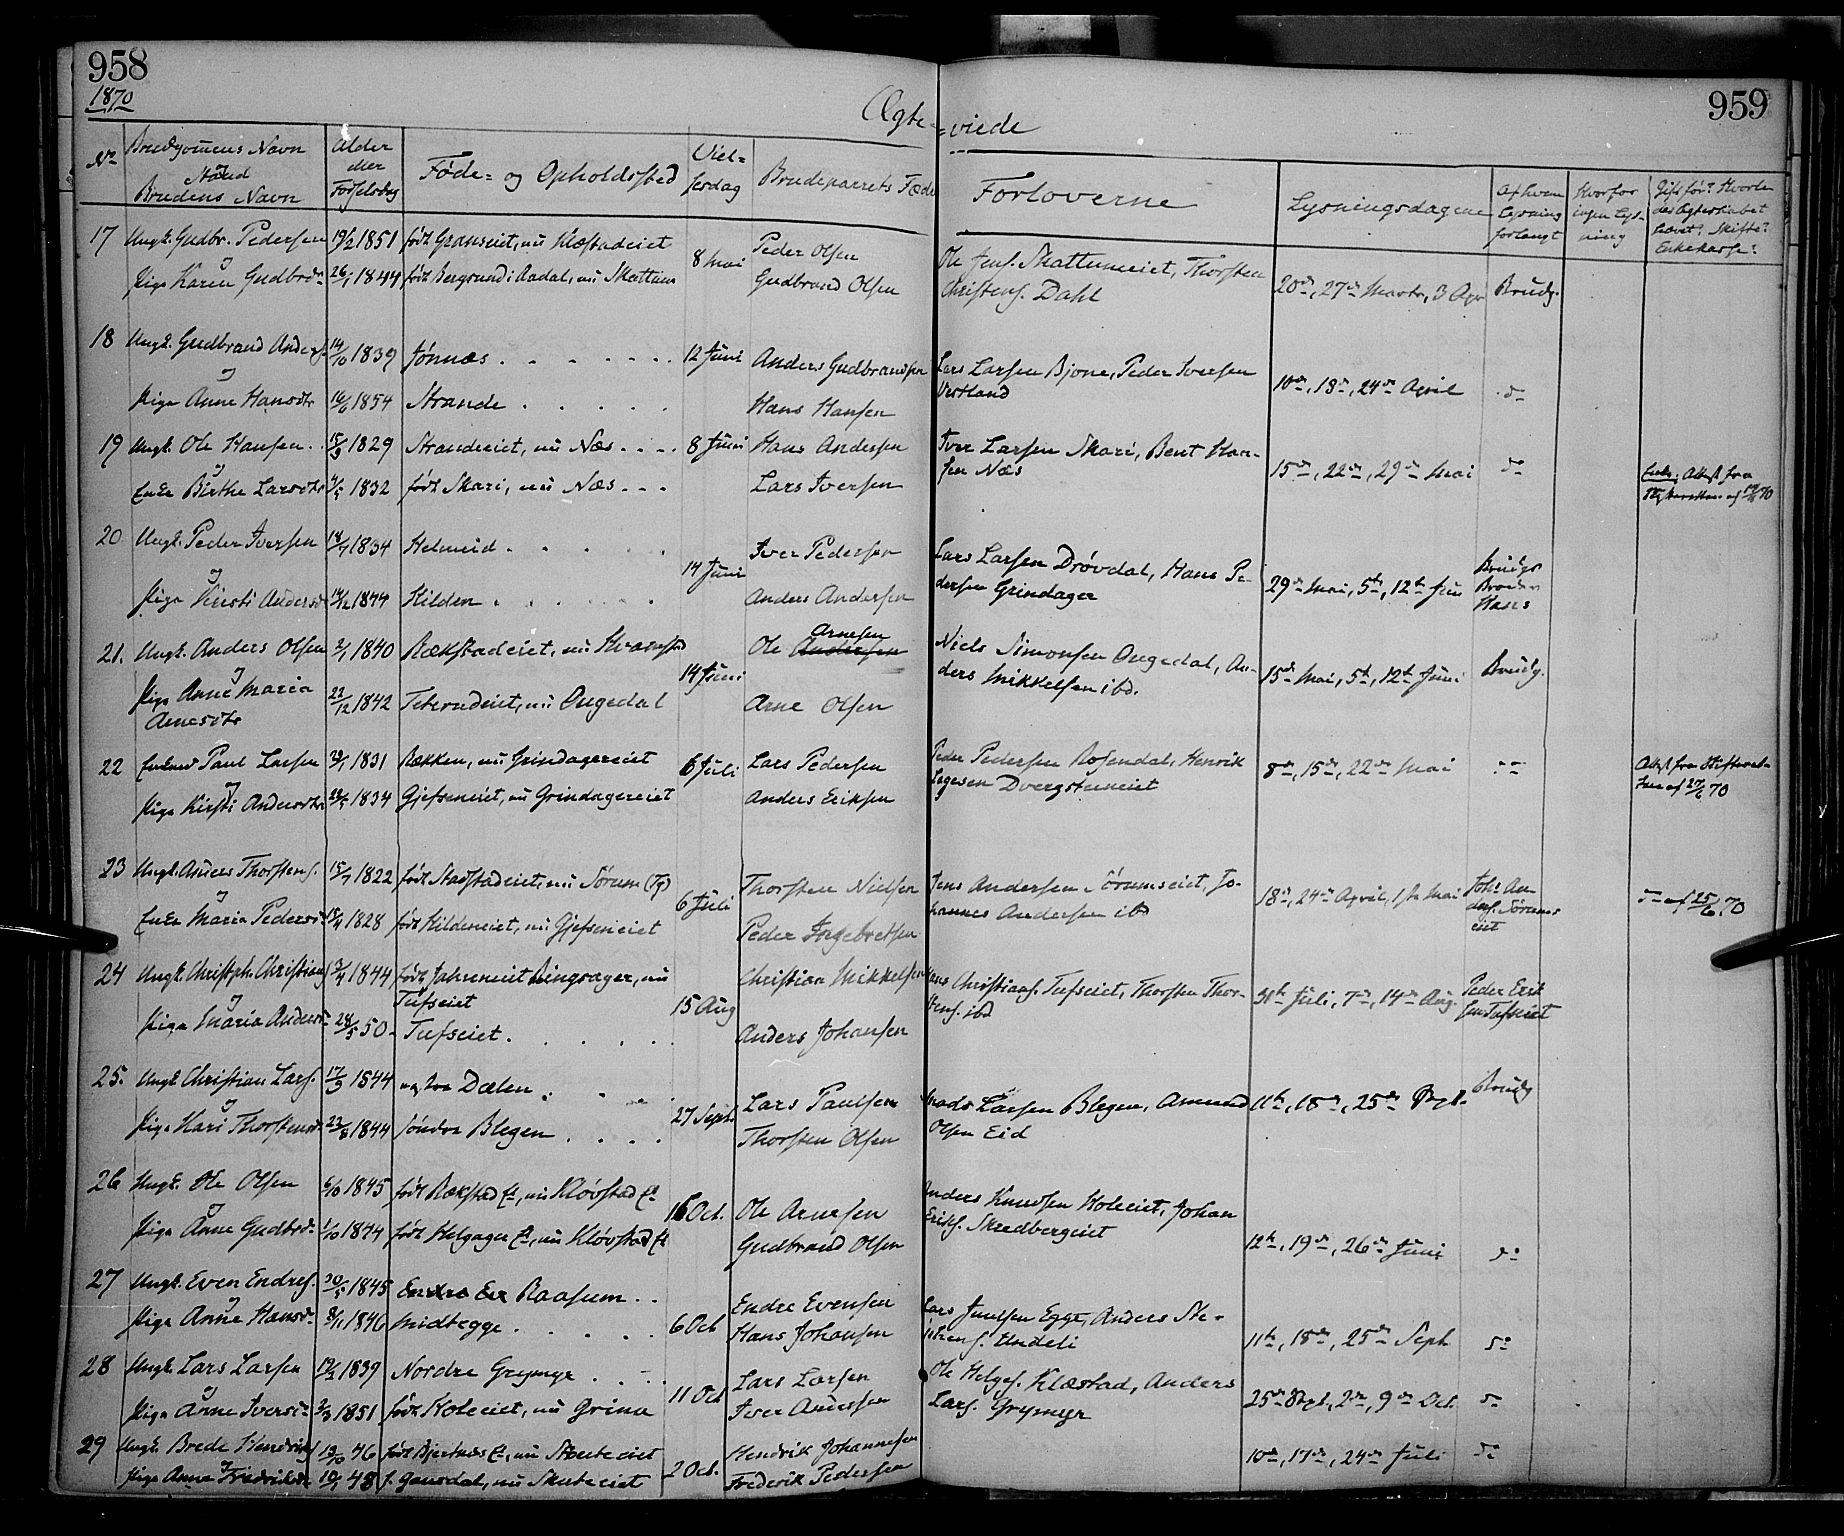 958
959
1870
Ægte-viede
No
Brudgomens Navn
og
Stand
Brudens Navn
Alder
eller
Fødselsdag
Føde- og Opholdssted
Viel-
sesdag
Brudeparrets Fædre
Forloverne
Lysningsdagene
Af hvem
Lysning
forlangt
Hvorfor
ingen Lys-
ning
Gift før? Hvorle-
des Ægteskabet
hævet? Skifte?
Enkekasse?
17 Ungk. Gudbr. Pedersen 19/2 1851 født Granseiet, nu Klæstadeiet 8 Mai Peder Olsen Ole Jens. Skattumeiet, Thorsten
og
Pige Karen Gudbrdr 26/1 1844 født Bergsund i Aadal, nu Skattum Gudbrand Olsen Christens. Dahl 20de, 27de Marts, 3 Apr Brudg.
18 Ungk. Gudbrand Anders. 14/10 1839 Jønnæs 12 Juni Anders Gudbrandsen Lars Larsen Bjone, Peder Iversen
og
Vestland 10de, 18de, 24de April do
Pige Anne Hansdtr 16/6 1854 Strande Hans Hansen
19 Ungk. Ole Hansen 15/9 1829 Strandeeiet, nu Næs 8 Juni Hans Andersen Iver Larsen Skari, Bent Han-
og
sen Næs 15de, 22de, 29de Mai do
Enke Birthe Larsdtr 1832 født Skari, nu Næs Lars Iversen Enke; Attest fra
70
20 Ungk. Peder Iversen 18/7 1834 Helmeid 14 Juni Iver Pedersen Lars Larsen Drøvdal, Hans Pe-
og
dersen Grindager 29de Mai, 5te, 12te Juni Brudgs
Broder
Hans
Pige Kirsti Andersdr 14/12 1844 Hilden Anders Andersen
21. Ungk. Anders Olsen 2/1 1840 Rækstadeiet, nu 14 Juni Ole Andersen Arnesen Niels Simonsen Ougedal, An-
og
ders Mikkelsen ibd. 15de Mai, 5te, 12te Juni Brudg.
Pige Anne Maria
Arnesdtr 22/12 1842 Teterudeiet, nu Ougedal Arne Olsen
22 Enkem Paul Larsen 1831 Røkken, nu Grindagereiet 6 Juli Lars Pedersen Peder Pedersen Rosendal, Henrik
og
8de, 15de, 22de Mai do Attest fra Skifteret-
ten af 27/6 70
Pige Kirsti Andersdtr 1834 Gjefseneiet, nu Grindagereiet Anders Eriksen
23 Ungk. Anders Thorstens. 15/7 1822 født Stadstadeiet, nu Sørum 6 Juli Thorsten Nielsen Jens Andersen Sørumseiet, Jo-
og
hannes Andersen ibd 18de, 24de April, 1ste Mai Johs An-
ders. Sørums
eiet
do af 25/6 70
Enke Maria Pedersdr 1828 født Hildeneiet, nu Gjefseneiet Peder Ingebretsen
24 Ungk. Christph. Christians 1844 født Jahreneiet Ringsager, nu
Tufseiet 15 Aug Christian Mikkelsen Hans Christians. Tufseiet, Thorsten Thor-
og
stens. ibd 31te Juli, 7de, 14de Aug. Peder Erik
sen Tufseiet
Pige Maria Andersdr 28/5 50 Tufseiet Anders Johansen
25. Ungk. Christian Lars. 17/9 1844 Dælen 27 Sept. Lars Paulsen Mads Larsen Blegen, Amund
og
Olsen Eid 11te, 18de, 25de Sept. Brudg
Pige Kari Thorstensdr 23/8 1844 søndre Blegen Thorsten Olsen
26 Ungk. Ole Olsen 6/10 1845 født Rækstad Et, nu Kløvstad Et 16 Oct. Ole Arnesen Anders Knudsen Holeiet, Johan
og
Eriks. Skredbergeiet 12te, 19de, 26de Juni do
Pige Anne Gudbrdr 1/10 1844 født Helgager Et, nu Kløvstad Et Gudbrand Olsen
27 Ungk. Even Endres. 20/5 1845 Raasum 6 Oct Endre Evensen Lars Juulsen Egge, Anders Ste-
og
phens. Undeli 11te, 18de, 25de Sept do
Pige Anne Hansdr 8/11 1846 Midtegge Hans Johansen
28 Ungk. Lars Larsen 12/2 1839 Nordre Grymyr 11 Oct Lars Larsen Ole Helges. Klæstad, Anders
og
Lars. Grymyr 25de Sept, 2den, 9de Oct. do
Pige Anne Iversdr 3/3 1851 født Holeiet, nu Grina Iver Andersen
29 Ungk. Brede Hendriks 13/10 46 født Bjertnæs Et, nu Skuteeiet 2 Oct. Hendrik Johannesen 10de, 17de, 24de Juli do
og
Pige Anne Fredriksdr 48 f. Gausdal, nu Skuteeiet Frederik Pedersen